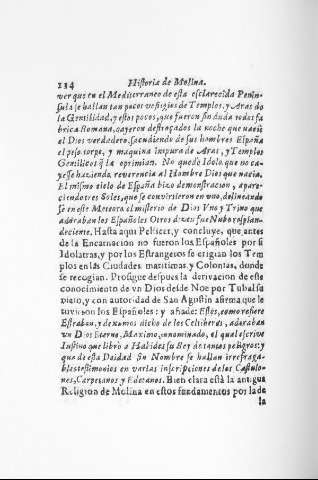 214 Historia de Molina.
ver que en el Mediterraneo de esta esclarecida Penin-
sula se hallan tan pocos vestigios de Templos, y Aras de
la Gentilidad, y estos pocos, que fueron sin duda todos fa
brica Romana, cayeron destroçados la noche que naciò
el Dios verdadero, sacudiendo de sus hombres España
el peso torpe, y maquina impura de Aras, y Templos
Gentilicos q̃ la oprimian. No quedò Idolo, que no ca-
yesse haziendo reverencia al Hombre Dios que nacia.
El mismo cielo de España hizo demonstracion, apare-
ciendo tres Soles, que se convirtieron en uno, delineando
se en este Meteoro el misterio de Dios Vno y Trino que
adoraban los Españoles Otros dizan fue Nube resplan-
deciente. Hasta aqui Pellicer, y concluye, que antes
de la Encarnacion no fueron los Españoles por si
Idolatras, y por los Estrangeros se erigian los Tem
plos en las Ciudades maritimas, y Colonias, donde
se recogian. Prosigue despues la derivacion de este
conocimiento de vn Dios desde Noe por Tubal su
vieto, y con autoridad de San Agustin afirma que le
tuvieron los Españoles: y añade: Estos, como refiere
Estrabon, y demàs dicho de los Celtiberos, adoraban
vn Dios Eterno, Maximo, innominado, el qual escrive
Iustino que librò a Habides su Rey de tantos peligros: y
que de esta Daidad Sin Nombre se hallan irrefraga-
bles testimonios en varias inscripciones de los Castulo-
nes, Carpetanos y Edetanos. Bien clara està la antigua
Religion de Molina en estos fundamentos por la de
la